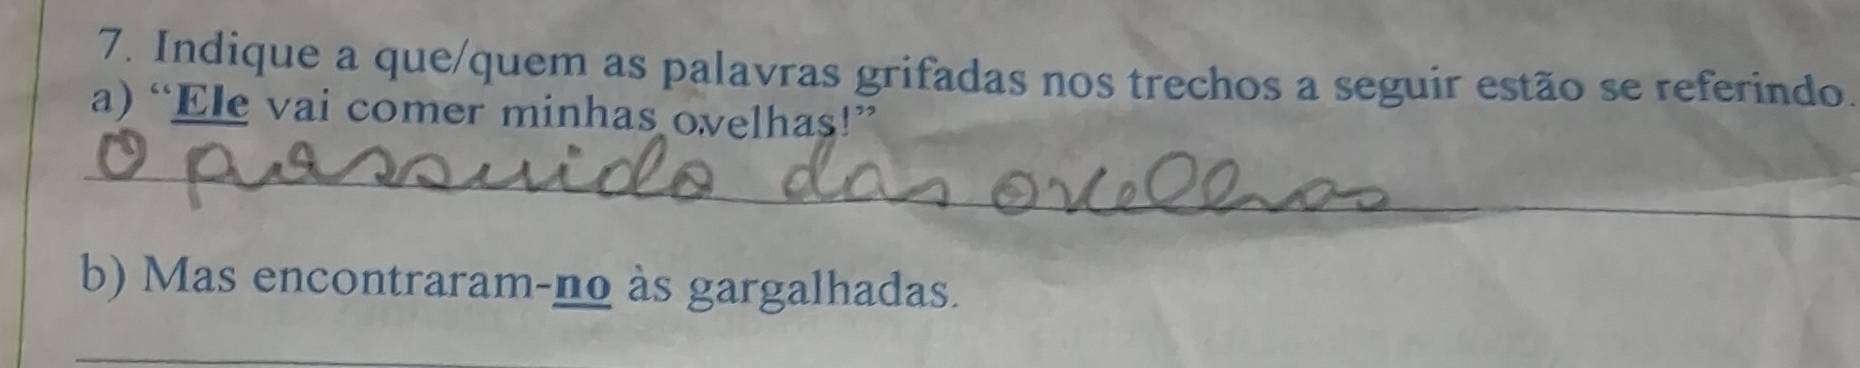 7. Indique a que/quem as palavras grifadas nos trechos a seguir estão se referindo.
a) “Ele vai comer minhas ovelhas!”
O das ovelhas
b) Mas encontraram-no às gargalhadas.